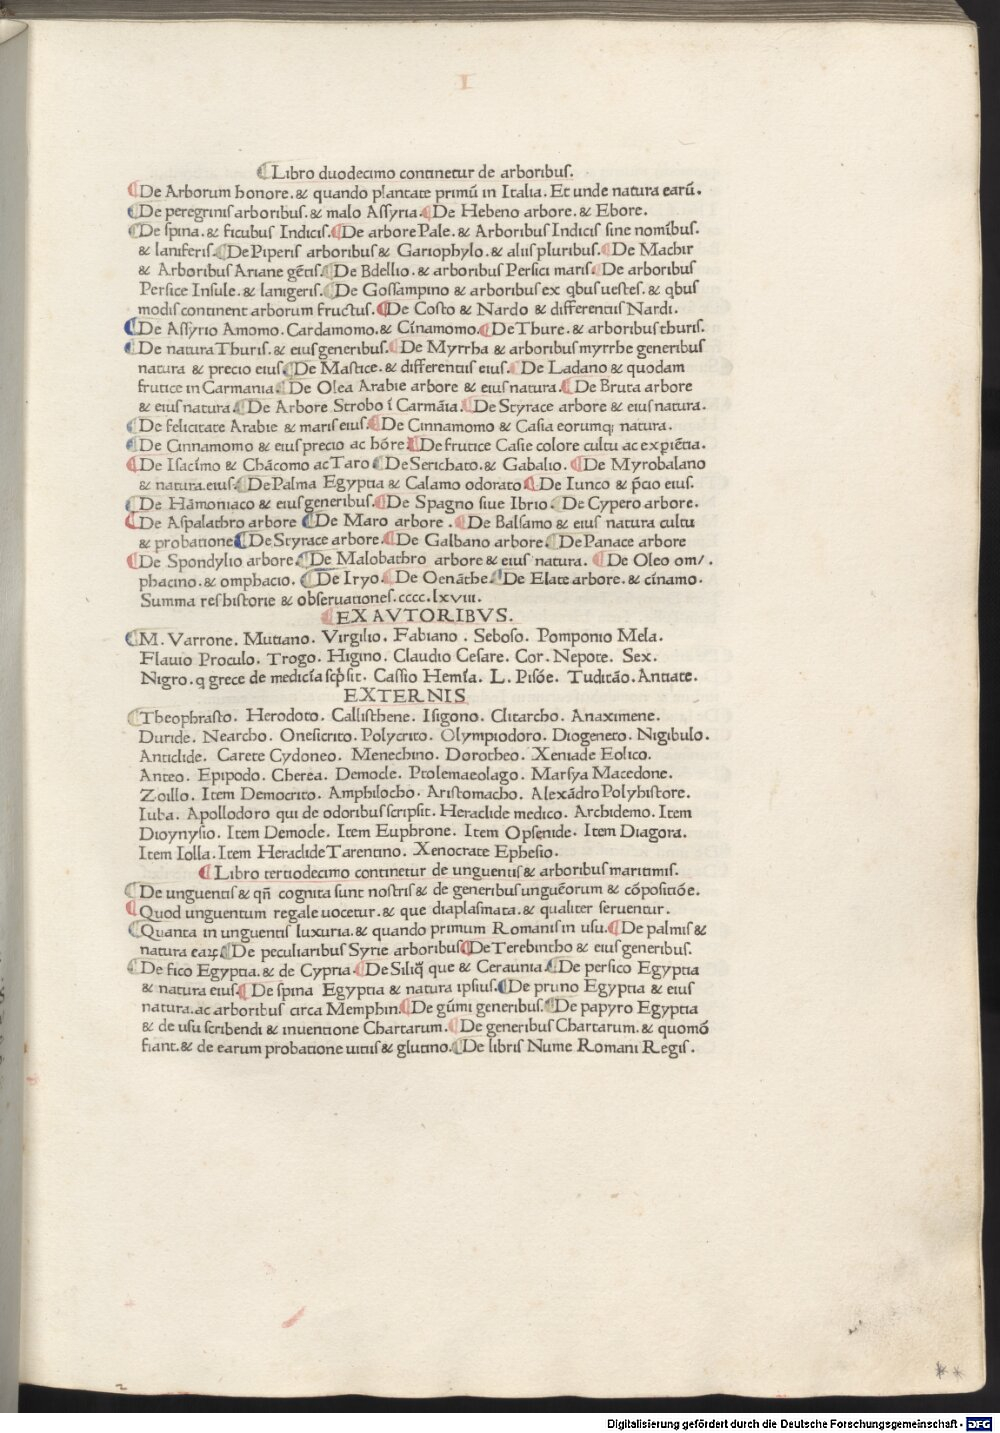 I
¶Libro duodecimo continetur de arboribus.
¶De Arborum honore. & quando plantate primū in Italia. Et unde natura earū.
¶De peregrinis arboribus. & malo Assyria. ¶De Hebeno arbore. & Ebore.
¶De spina. & ficubus Indicis. ¶De arbore Pale. & Arboribus Indicis sine nomībus.
& laniferis. ¶De Piperis arboribus & Gariophylo. & aliis pluribus. ¶De Machir
& Arboribus Ariane gētis. ¶De Bdellio. & arboribus Persici maris. ¶De arboribus
Persice Insule. & lanigeris. ¶De Gossampino & arboribus ex qbus uestes. & qbus
modis continent arborum fructus. ¶De Costo & Nardo & differentiis Nardi.
¶De Assyrio Amomo. Cardamomo. & Cīnamomo. ¶De Thure. & arboribus thuris.
¶De natura Thuris. & eius generibus. ¶De Myrrha & arboribus myrrhe generibus
natura & precio eius ¶De Mastice. & differentiis eius. ¶De Ladano & quodam
frutice in Carmania. ¶De Olea Arabie arbore & eius natura. ¶De Bruta arbore
& eius natura. ¶De Arbore Strobo ī Carmāia. ¶De Styrace arbore & eius natura.
¶De felicitate Arabie & maris eius. ¶De Cinnamomo & Casia eorumq; natura.
¶De Cinnamomo & eius precio ac hōre. ¶De frutice Casie colore cultu ac expiētia.
¶De Isacīmo & Chācomo ac Taro ¶De Serichato. & Gabalio. ¶De Myrobalano
& natura eius. ¶De Palma Egyptia & Calamo odorato ¶De Iunco & p̄cio eius.
¶De Hāmoniaco & eius generibus. ¶De Spagno siue Ibrio. ¶De Cypero arbore.
¶De Aspalathro arbore ¶De Maro arbore. ¶De Balsamo & eius natura cultu
& probatione ¶De Styrace arbore. ¶De Galbano arbore. ¶De Panace arbore
¶De Spondylio arbore. ¶De Malobathro arbore & eius natura. ¶De Oleo om/.
phacino. & omphacio. ¶De Iryo. ¶De Oenāthe ¶De Elate arbore. & cīnamo.
Summa res historie & obseruationes. cccc. lxviii.
¶EX AVTORIBVS.
¶M. Varrone. Mutiano. Virgilio. Fabiano. Seboso. Pomponio Mela.
Flauio Proculo. Trogo. Higino. Claudio Cesare. Cor. Nepote. Sex.
Nigro. q grece de medicīa scp̄sit. Cassio Hemīa. L. Pisōe. Tuditāo. Antiate.
EXTERNIS
¶Theophrasto. Herodoto. Callisthene. Isigono. Clitarcho. Anaximene.
Duride. Nearcho. Onesicrito. Polycrito. Olympiodoro. Diogeneto. Nigibulo.
Anticlide. Carete Cydoneo. Menechino. Dorotheo. Xeniade Eolico.
Anteo. Epipodo. Cherea. Democle. Ptolemaeolago. Marsya Macedone.
Zoillo. Item Democrito. Amphilocho. Aristomacho. Alexādro Polyhistore.
Iuba. Apollodoro qui de odoribus scripsit. Heraclide medico. Archidemo. Item
Dioynysio. Item Democle. Item Euphrone. Item Opsenide. Item Diagora.
Item Iolla. Item Heraclide Tarentino. Xenocrate Ephesio.
¶Libro tertiodecimo continetur de unguentis & arboribus maritimis.
¶De unguentis & qn̄ cognita sunt nostris & de generibus unguētorum & cōpositiōe.
¶Quod unguentum regale uocetur. & que diaplasmata. & qualiter seruentur.
¶Quanta in unguentis luxuria. & quando primum Romanis in usu. ¶De palmis &
natura eaꝝ ¶De peculiaribus Syrie arboribus ¶De Terebintho & eius generibus.
¶De fico Egyptia. & de Cypria. ¶De Siliq̄ que & Ceraunia. ¶De persico Egyptia
& natura eius ¶De spina Egyptia & natura ipsius. ¶De pruno Egyptia & eius
natura. ac arboribus circa Memphin. ¶De gūmi generibus. ¶De papyro Egyptia
& de usu scribendi & inuentione Chartarum. ¶De generibus Chartarum. & quomō
fiant. & de earum probatione uitiis & glutino. ¶De libris Nume Romani Regis.
Digitalisierung gefördert durch die Deutsche Forschungsgemeinschaft - DFG